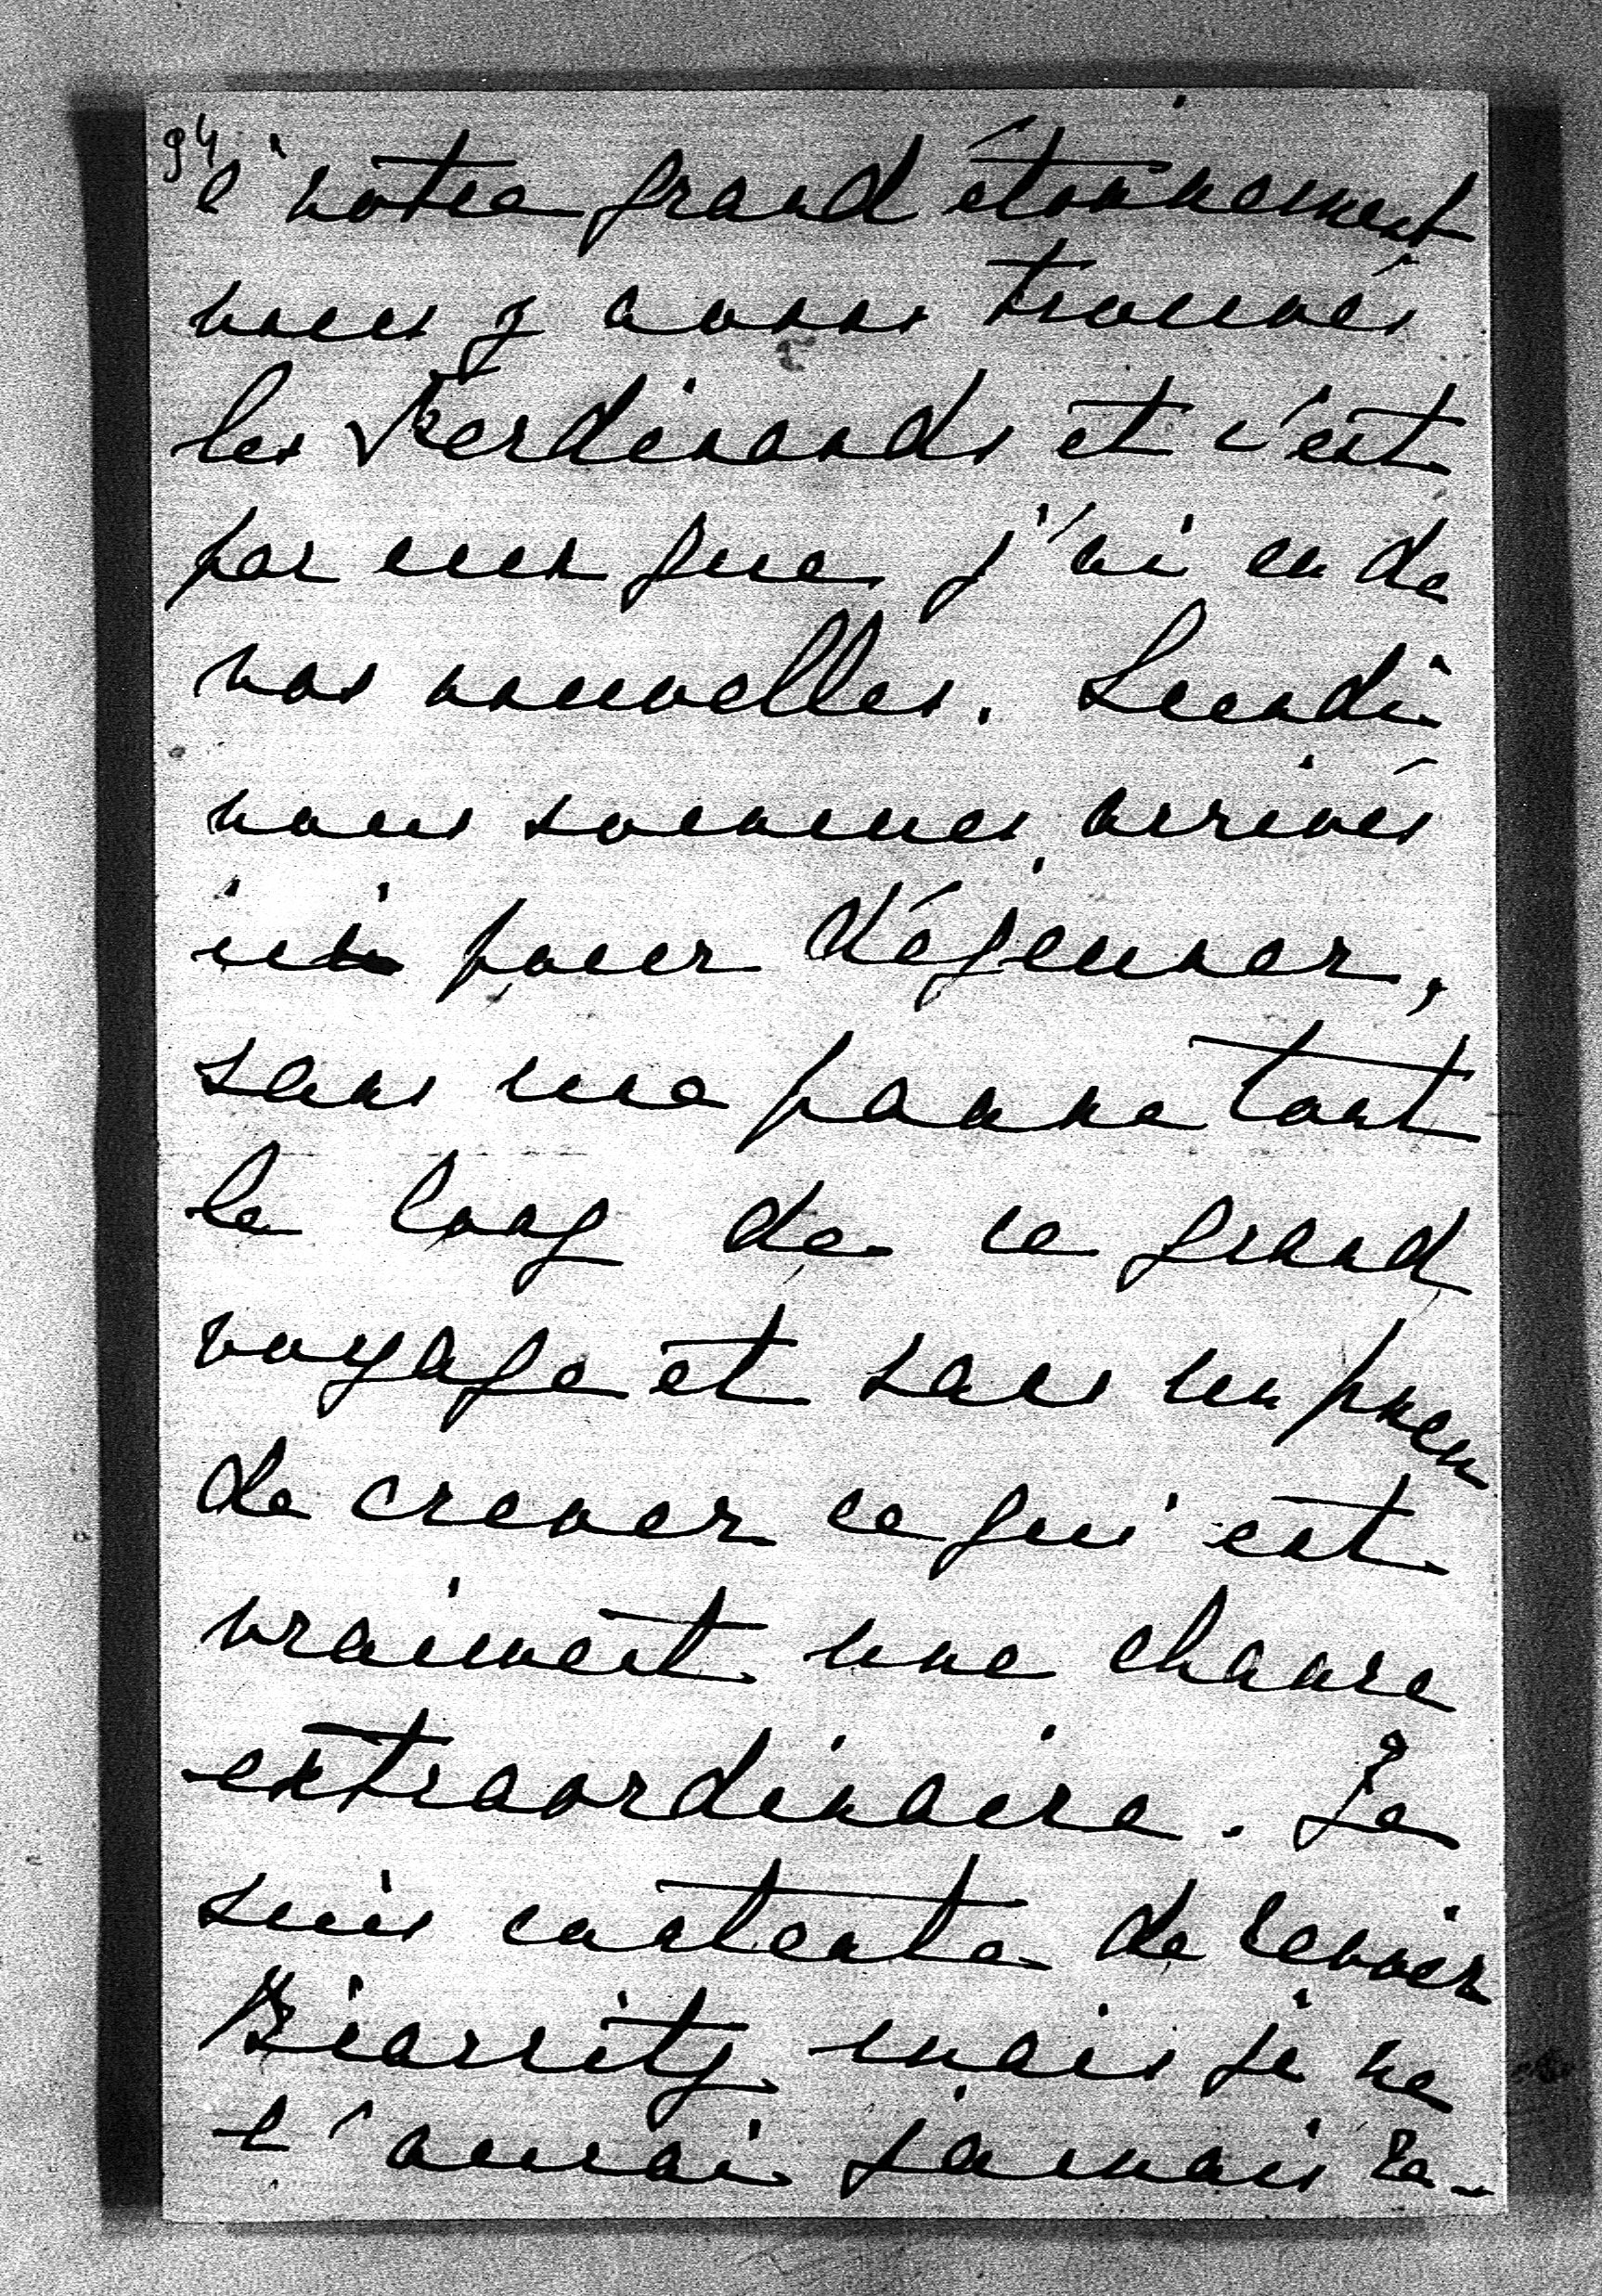 94
à notre grand étonnement
nous y avons trouvés
les Ferdinands et c'est
par eux que j'ai eu de
vos nouvelles. Lundi
nous sommes arrivés
ici pour déjeuner,
sans une panne tout
le long de ce grand
voyage et sans un pneu
de crever ce qui est
vraiment une chance
extraordinaire. Je
suis contente de revoir
Biarritz mais je ne
l'aurai jamais re-